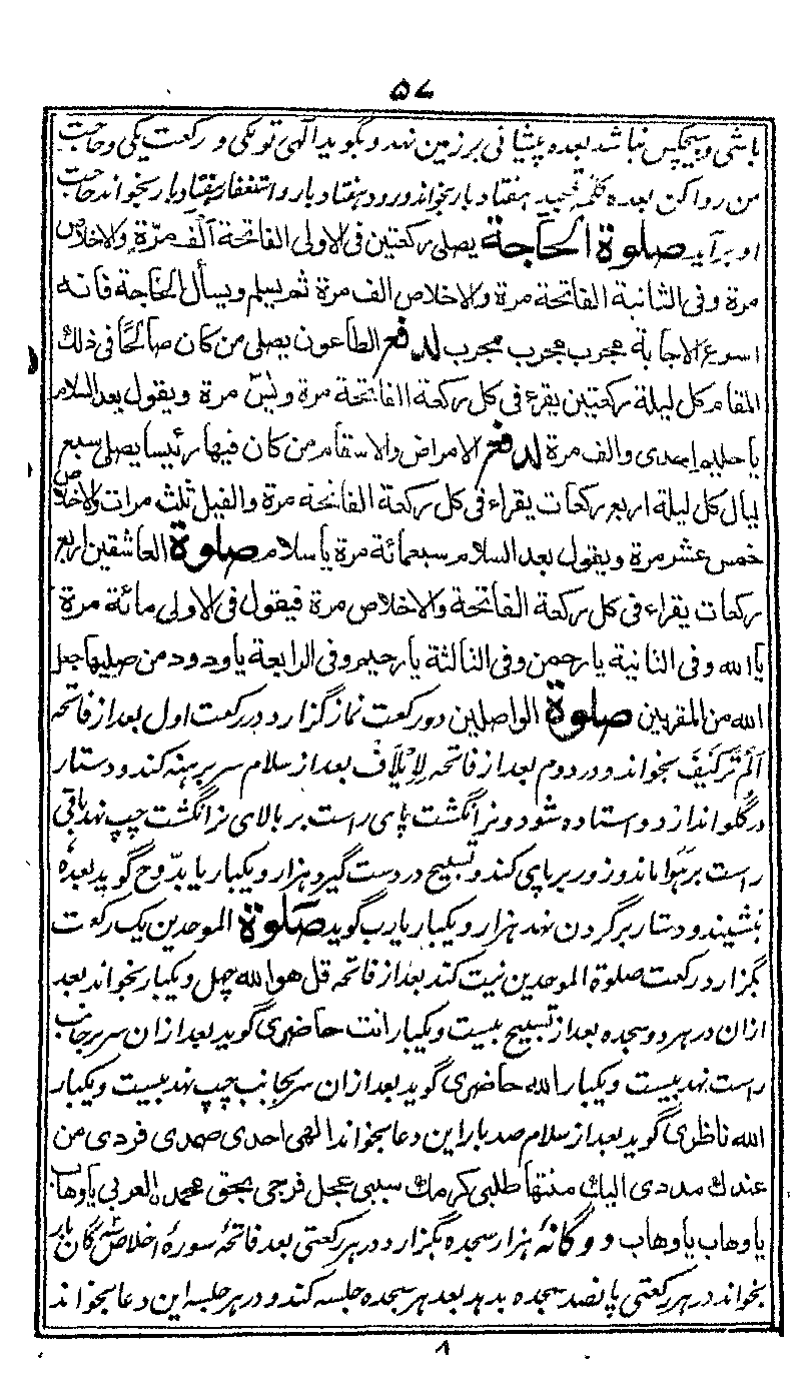 ۵۷
باشی و هیچکس نباشد بعده پیشانی بر زمین نهد و بگوید الٰهی تو یکی و رکعت یکی و حاجت
من روا کن بعده کلمه تمجید هفتاد بار بخواند و درود هفتاد بار و استغفار هفتاد بار بخواند حاجت
او بر آید صلوة الحاجة یصلی رکعتین فی الاولی الفاتحة الف مرة والاخلاص
مرة وفی الثانیة الفاتحة مرة والاخلاص الف مرة ثم یسلم ویسأل الحاجة فانه
اسرع الاجابة مجرب مجرب مجرب لدفع الطاعون یصلی من کان صالحًا فی ذلک
المقام کل لیلة رکعتین یقراء فی کل رکعة الفاتحة مرة ویٰسٓ مرة ویقول بعد السلام
یا حلیم احدی والف مرة لدفع الامراض والاسقام من کان فیها رئیسا یصلی سبع
لیال کل لیلة اربع رکعات یقراء فی کل رکعة الفاتحة مرة والفیل ثلث مرات والاخلاص
خمس عشر مرة ویقول بعد السلام سبعمائة مرة یا سلام صلوة العاشقین اربع
رکعات یقراء فی کل رکعة الفاتحة والاخلاص مرة فیقول فی الاولی مائة مرة
یا الله وفی الثانیة یا رحمن وفی الثالثة یا رحیم وفی الرابعة یا ودود من صلیها جعل
الله من المقربین صلوة الواصلین دو رکعت نماز گزارد در رکعت اول بعد از فاتحه
اَلَمْ تَرَ کَیْفَ بخواند و در دوم بعد از فاتحه لِاِیْلٰفِ بعد از سلام سر برهنه کند و دستار
در گلو اندازد و استاده شود و نر انگشت پای راست بر بالای نر انگشت چپ نهد باقی
راست بر هوا ماند و زور بر پای کند و تسبیح در دست گیرد هزار و یکبار یا بدّوح گوید بعده
بنشیند و دستار بر گردن نهد هزار و یکبار یا رب گوید صلوة الموحدین یک رکعت
بگزارد رکعت صلوة الموحدین نیت کند بعد از فاتحه قل هو الله چهل و یکبار بخواند بعد
ازان در هر دو سجده بعد از تسبیح بیست و یکبار انت حاضری گوید بعد ازان سر بر جانب
راست نهد بیست و یکبار الله حاضری گوید بعد ازان سر بجانب چپ نهد بیست و یکبار
الله ناظری گوید بعد از سلام صد بار این دعا بخواند الهی احدی صمدی فردی من
عندك مددی الیك منتها طلبی کرمك سببی عجل فرجی بحق محمد العربی یا وهاب
یا وهاب یا وهاب دوگانۀ هزار سجده بگزارد در هر رکعتی بعد فاتحه سورۀ اخلاص سه گان بار
بخواند در هر رکعتی پانصد سجده بدهد بعد هر سجده جلسه کند و در هر جلسه این دعا بخواند
۸